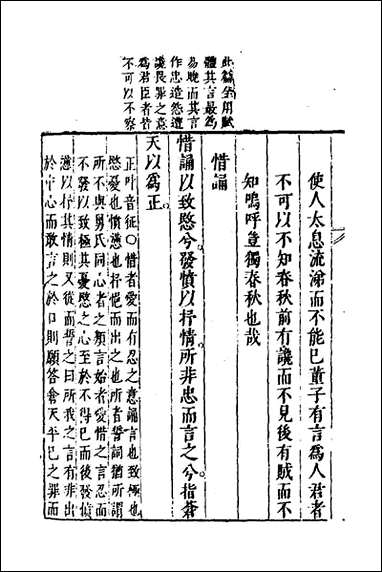 此篇全用賦
體其言最爲
易曉而其言
作忠造怨遭
讒畏罪之意
爲君臣者皆
不可以不察
使人太息流涕而不能已董子有言爲人君者
不可以不知春秋前有讒而不見後有賊而不
知嗚呼豈獨春秋也哉
惜誦
惜誦以致愍兮發憤以抒情所非忠而言之兮指蒼
天以爲正
正叶音征○惜者愛而有忍之意誦言也致極也
愍憂也憤懣也抒挹而出之也所者誓詞猶所謂
所不與舅氏同心者之類言始者愛惜之言忍而
不發以致極其憂愍之心至於不得已而後發憤
懣以抒其情則又從而誓之曰所我之言有非出
於中心而敢言之於口則願答倉天平己之罪而